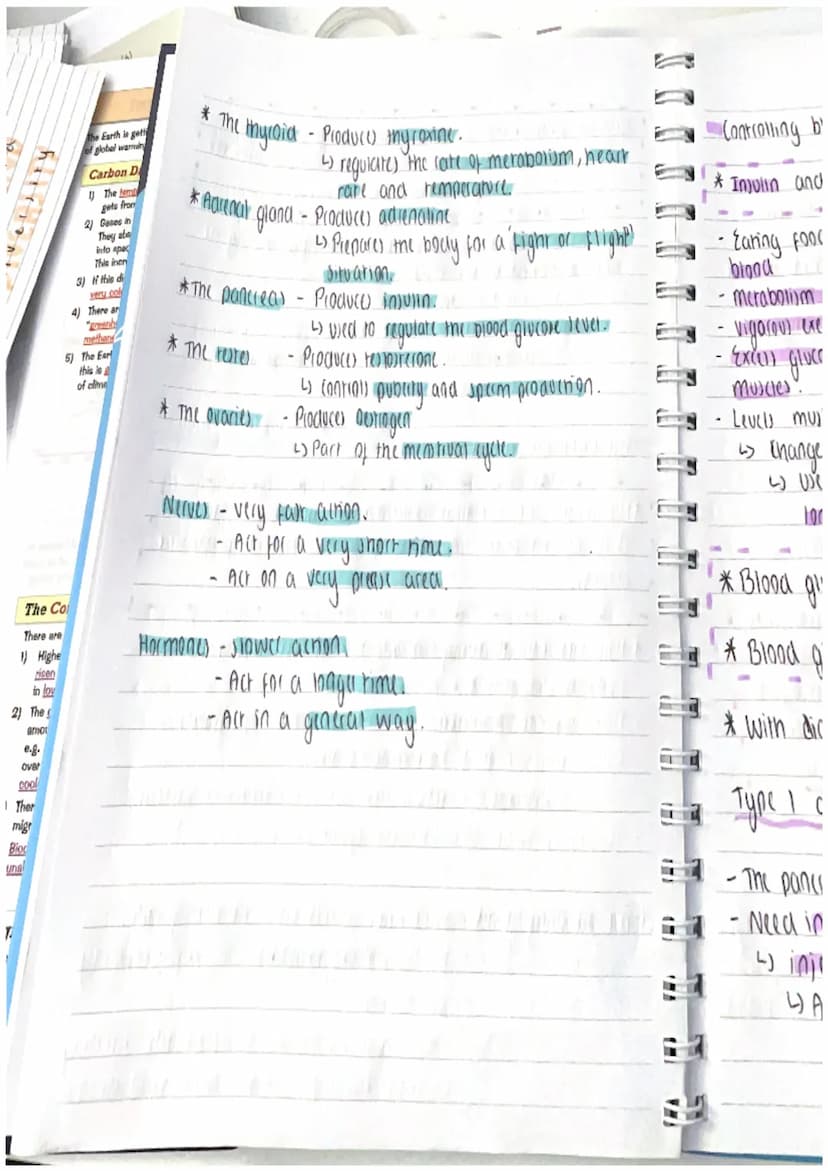 * The thyroid - Produces thyroxine.
↳ regulates the rate of metabolism, heart
rate and temperature.
* Adrenal gland - Produces adrenaline
↳ Prepares the body for a 'fight or flight'
situation.
* The pancreas - Produces insulin.
↳ used to regulate the blood glucose level.
* The testes - Produces testosterone.
↳ controls puberty and sperm production.
* The ovaries - Produces Oestrogen
↳ Part of the menstrual cycle.
Nerves - very fast action.
- Act for a very short time.
- Act on a very precise area.
Hormones - slower action.
- Act for a longer time.
- Act in a general way.
Controlling b
* Insulin and
- Eating food
blood
- metabolism
- vigorous exe
- Excess gluco
muscles.
- Levels mus
↳ Change
↳ Use
lon
* Blood gl
* Blood g
* With dic
Type 1 d
- The pancr
- Need in
↳ inje
↳ A
The Earth is gett
of global warmin
Carbon Di
1) The temp
gets from
2) Gases in
They abs
into spac
This incr
3) If this di
very cold
4) There ar
"greenh
methane
5) The Eart
this is a
of clima
The Co
There are
1) Highe
risen
in low
2) The
amou
e.g.
over
cool
Ther
migr
Biod
unal